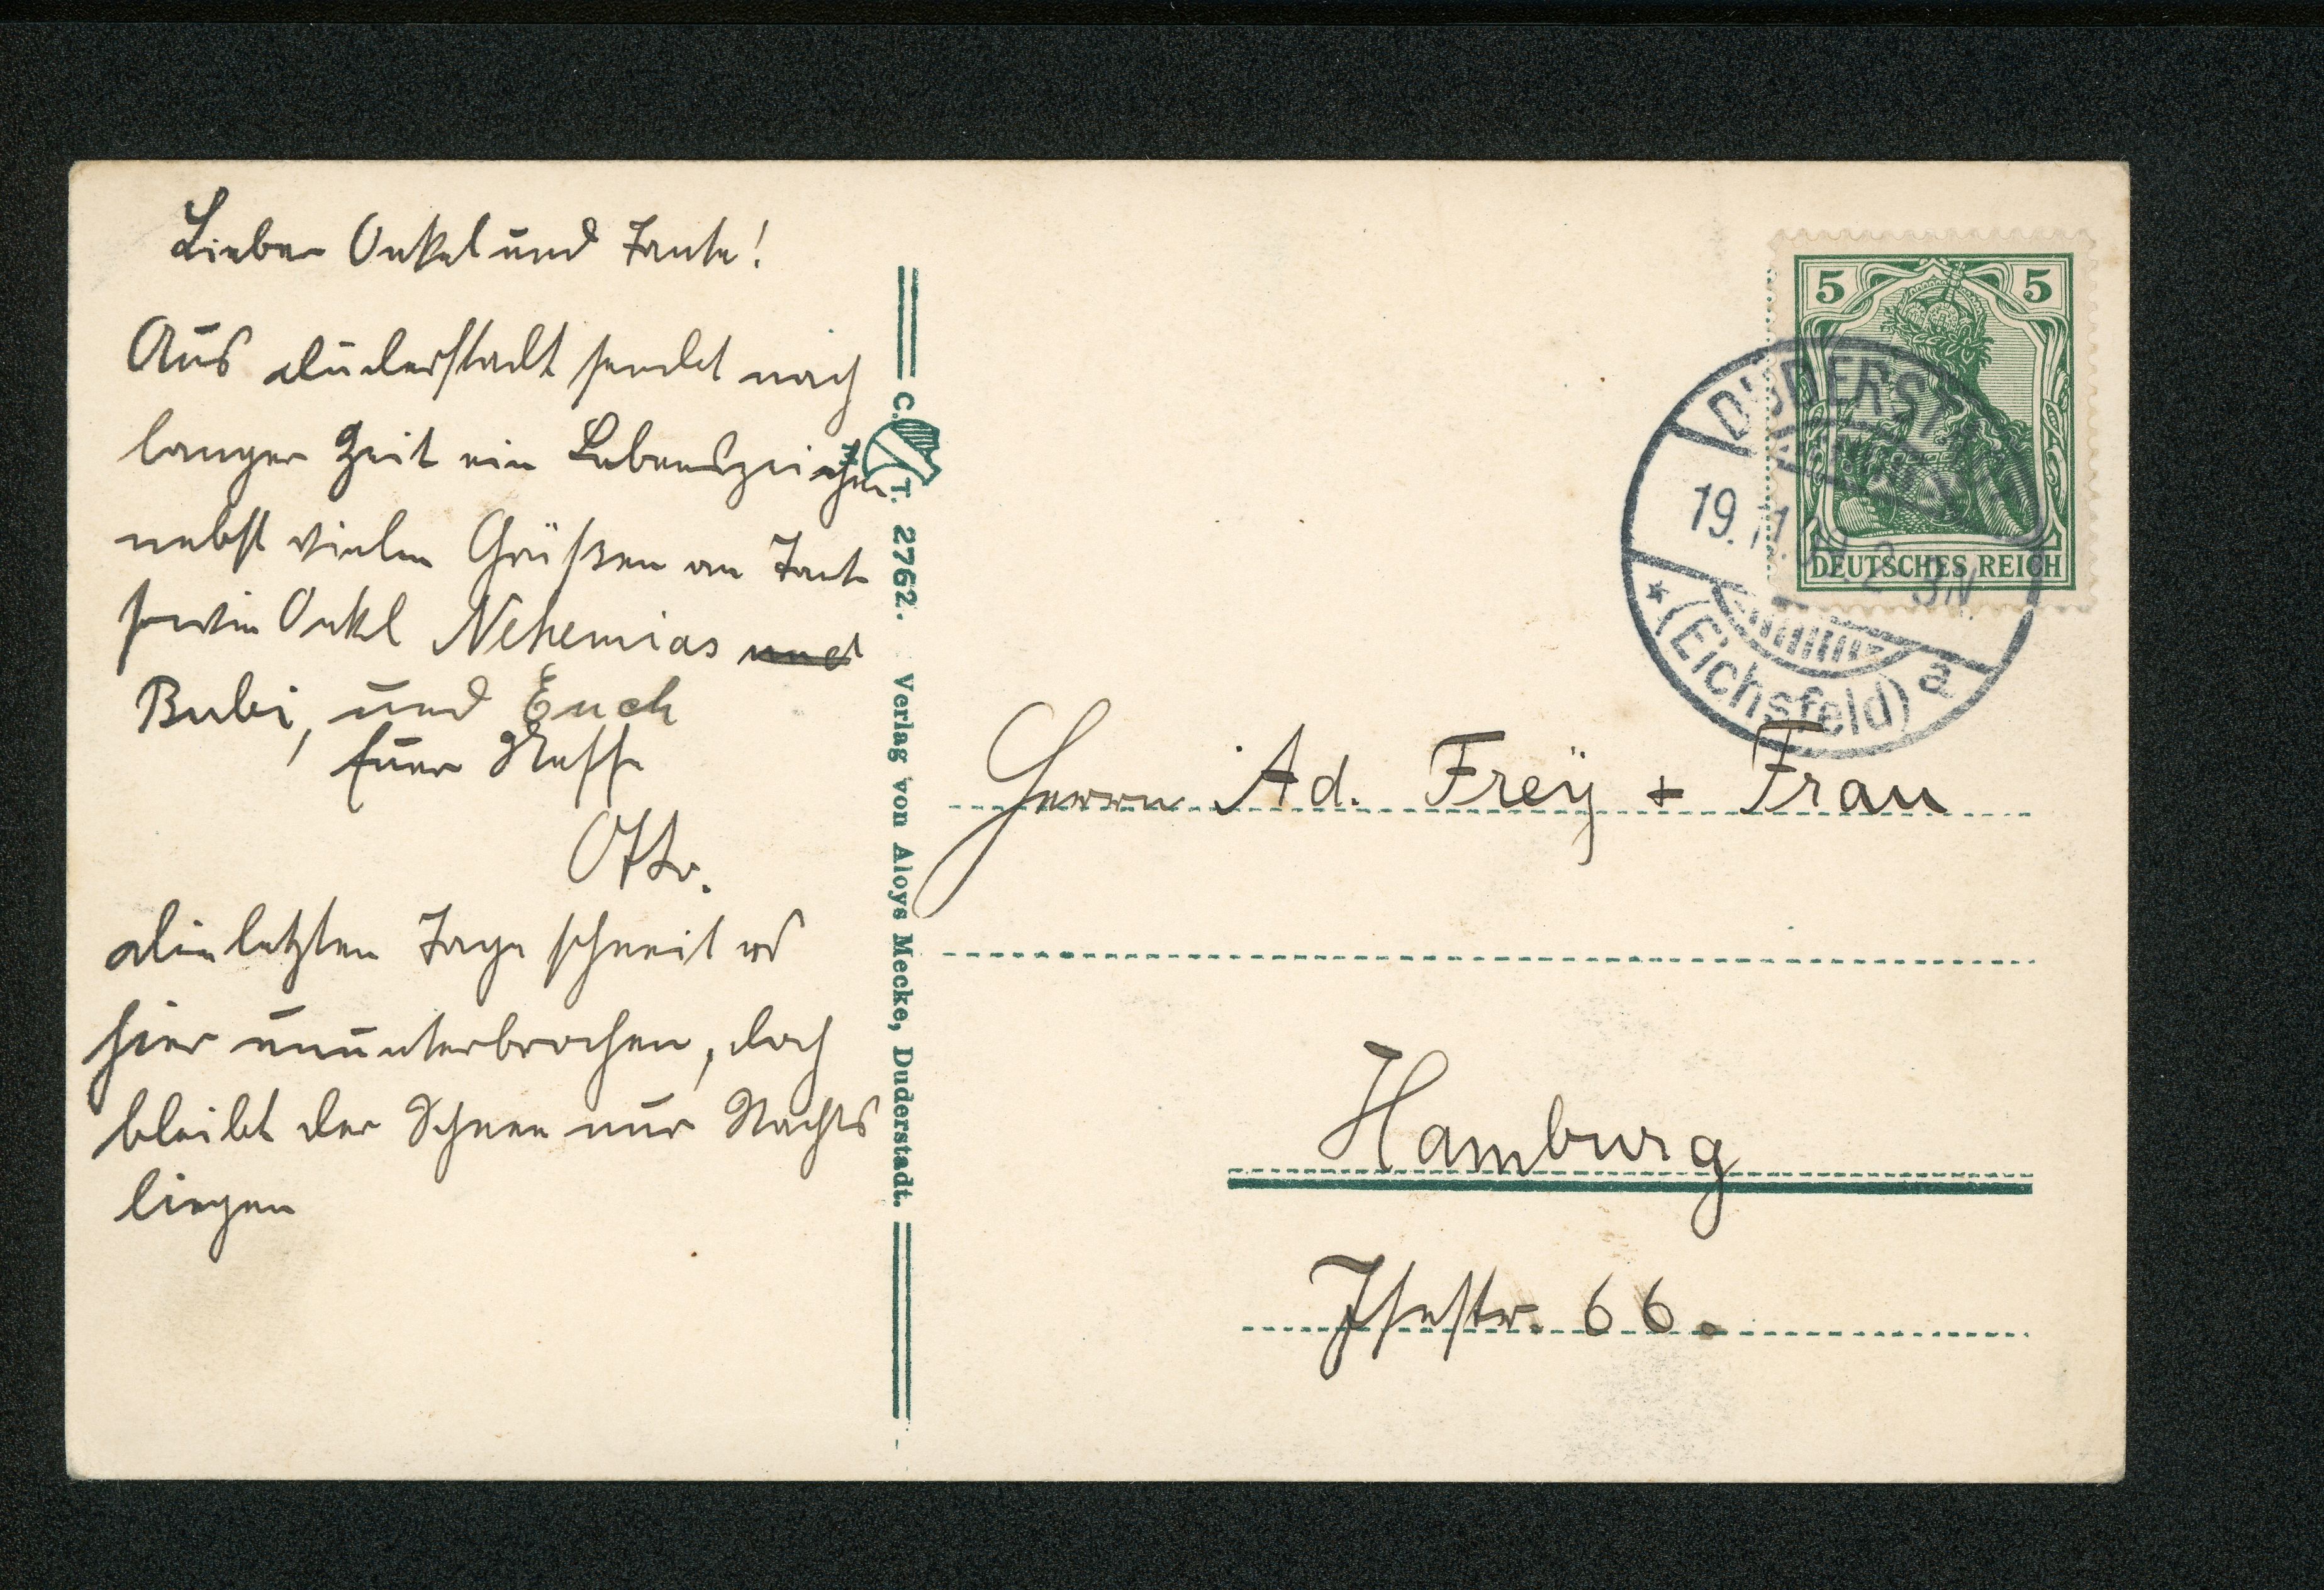 Lieber Onkel und Tante!
Aus Duderstadt sendet nach
langer Zeit ein Lebenszeichen
nebst vielen Grüßen an Tante
sowie Onkel Nehemias und
Bubi, und Euch
Euer Neffe
Otto.
Die letzten Tage schneit es
hier ununterbrochen, doch
bleibt der Schnee nur Nachts
liegen
C. T. 2762. Verlag von Aloys Mecke, Duderstadt.
5 5
DEUTSCHES REICH
DUDERSTADT
19.11.
(Eichsfeld) a
Herrn Ad. Freÿ + Frau
Hamburg
Isestr. 66.